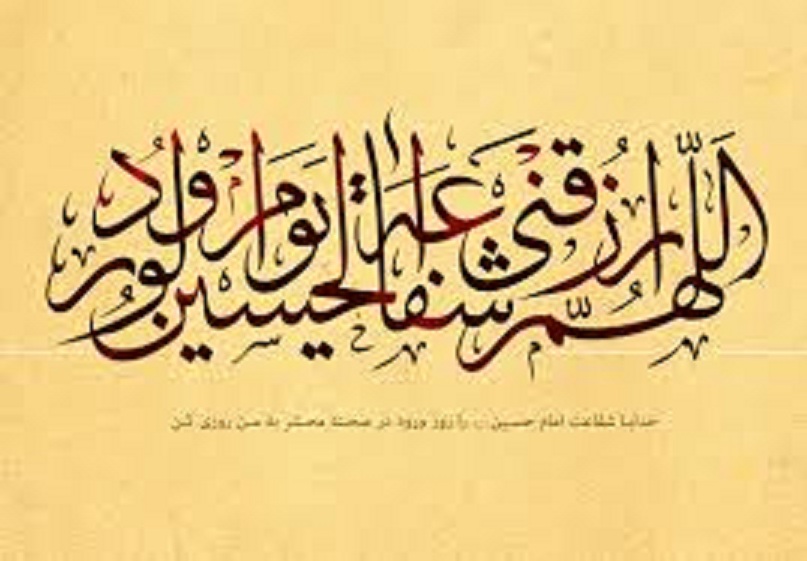 اللهم ارزقنی شفاعة الحسین یوم الورود
خدایا شفاعت امام حسین را روز ورود در صحنه محشر به من روزی کن